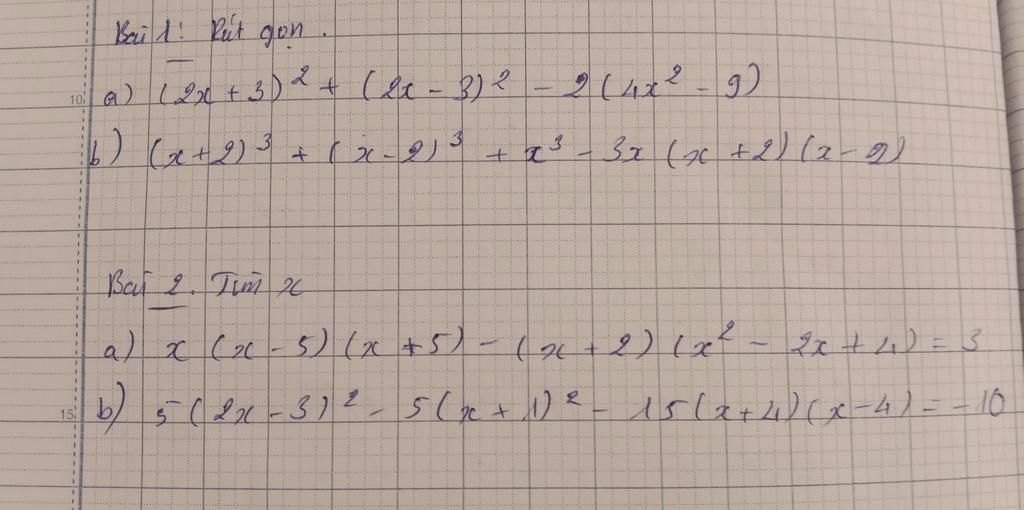 Bài 1: Rút gọn.
10. a) (2x + 3)² + (2x - 3)² - 2(4x² - 9)
b) (x+2)³ + (x-2)³ + x³ - 3x(x+2)(x-2)
Bài 2. Tìm x
a) x(x-5)(x+5) - (x+2)(x² - 2x+4) = 3
15. b) 5(2x-3)² - 5(x+1)² - 15(x+4)(x-4) = -10